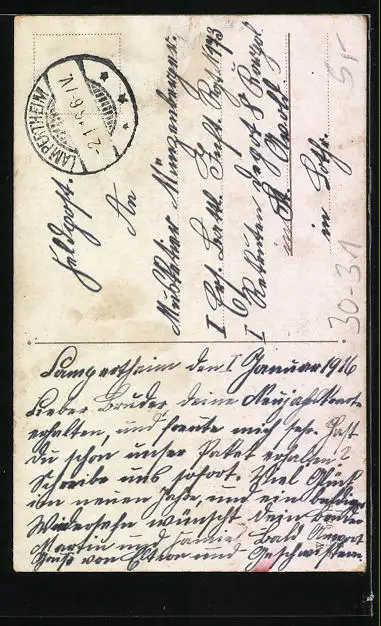 LAMPERTHEIM
-2.1.16.6-7N.
Feldpost.
An
Musketier
I Ers. Batl. Inft. Rgt. 173
I Rekruten depot 8 Korpol
St. Avold
in Lothr.
30-31
5,-
Lampertheim den I Januar 1916
Lieber Bruder deine Neujahrskarte
erhalten, und freute mich sehr. Hast
Du schon unser Paket erhalten?
Schreibe uns sofort. Viel Glück
im neuen Jahr, und ein baldiges
Wiedersehn wünscht dein Bruder
Martin und Bald
Gruß von Eltern und Geschwistern.